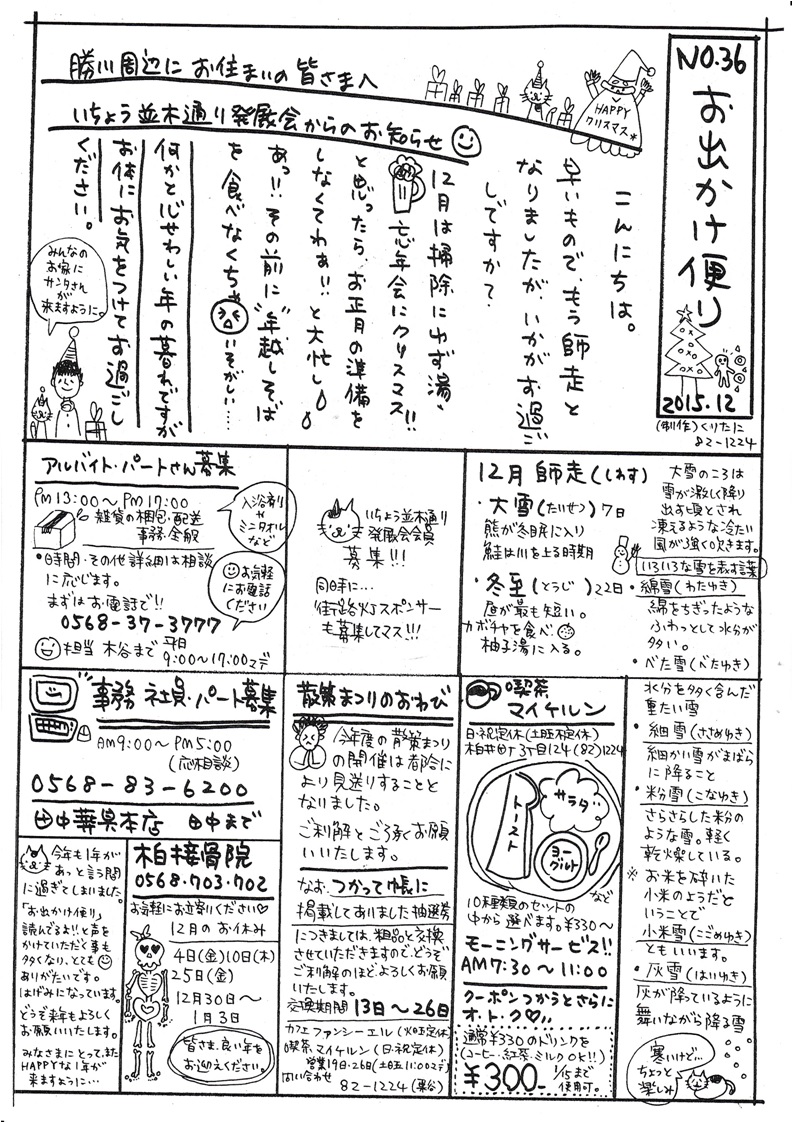 勝川周辺にお住まいの皆さまへ
いちょう並木通り発展会からのお知らせ
HAPPY
クリスマス*
NO.36
お出かけ便り
2015.12
(制作)くりたに
82-1224
こんにちは。
早いもので、もう師走と
なりましたが、いかがお過ご
しですか?
12月は掃除にゆず湯、
忘年会にクリスマス!!
と思ったら、お正月の準備を
しなくてわぁ!!と大忙し
あっ!!その前に"年越しそば"
を食べなくちゃ
いそがしい……
何かと心せわしい年の暮れですが
お体にお気をつけてお過ごし
ください。
みんなの
お家に
サンタさん
が
来ますように。
アルバイト・パートさん募集
PM13:00~PM17:00
雑貨の梱包・配送
事務全般
入浴剤
や
ミニタオル
など
・時間・その他詳細は相談
に応じます。
まずはお電話で!!
0568-37-3777
お気軽
にお電話
ください
担当 木谷まで 平日
9:00~17:00マデ
いちょう並木通り
発展会会員
募集!!!
同時に…
街路灯スポンサー
も募集してマス!!!
12月 師走(しわす)
・大雪(たいせつ)7日
熊が冬眠に入り
鮭は川を上る時期
・冬至(とうじ)22日
昼が最も短い。
カボチャを食べ
柚子湯に入る。
大雪のころは
雪が激しく降り
出す頃とされ
凍えるような冷たい
風が強く吹きます。
いろいろな雪を表す言葉
・綿雪(わたゆき)
綿をちぎったような
ふわっとして水分が
多い。
・べた雪(べたゆき)
水分を多く含んだ
重たい雪
・細雪(ささめゆき)
細かい雪がまばら
に降ること
・粉雪(こなゆき)
さらさらした粉の
ような雪。軽く
乾燥している。
※お米を砕いた
小米のようだと
いうことで
小米雪(こごめゆき)
ともいいます。
・灰雪(はいゆき)
灰が降っているように
舞いながら降る雪
寒いけど…
ちょっと
楽しみ
事務 社員・パート募集
AM9:00~PM5:00
(応相談)
0568-83-6200
田中華具本店 田中まで
散策まつりのおわび
今年度の散策まつり
の開催は都合に
より見送りすることと
なりました。
ご利解とご了承お願
いいたします。
なお、つかって帳に
掲載してありました抽選券
につきましては、粗品と交換
させていただきますので、どうぞ
ご利解のほどよろしくお願
いいたします。
交換期間 13日~26日
カフェファンシーエル(火曜定休)
喫茶マイケルン(日・祝定休)
営業19日・26日(土曜11:00マデ)
問い合わせ
82-1224(栗谷)
喫茶
マイケルン
日・祝定休(土曜不定休)
柏井町3丁目124(82)1224
トースト
サラダ
ヨーグルト
など
10種類のセットの
中から選べます。¥330~
モーニングサービス!!
AM7:30~11:00
クーポンつかうとさらに
オ・ト・ク
通常¥330のドリンクを
(コーヒー・紅茶・ミルクOK!!)
¥300-
1/15まで
使用可。
今年も1年が
あっと言う間
に過ぎてしまいました。
「お出かけ便り」
読んでるよ!!と声を
かけていただく事も
多くなり、とても
ありがたいです。
はげみになっています。
どうぞ来年もよろしく
お願いいたします。
みなさまにとって、また
HAPPYな1年が
来ますように…
柏接骨院
0568・703・702
お気軽にお立寄りください
12月のお休み
4日(金)10日(木)
25日(金)
12月30日~
1月3日
皆さま、良い年を
お迎えください。